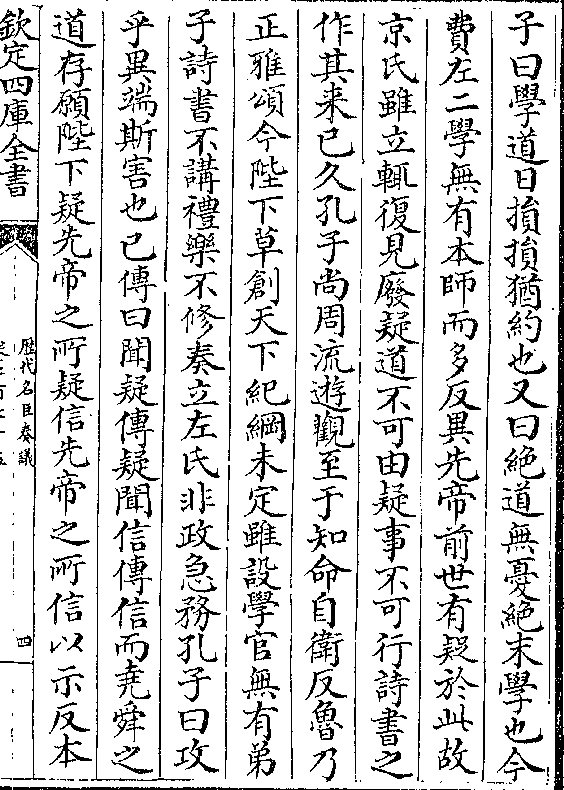 子曰學道日損損猶約也又曰絶道無憂絶末學也今
費左二學無有本師而多反異先帝前世有疑於此故
京氏雖立輒復見廢疑道不可由疑事不可行詩書之
作其来已久孔子尚周流遊觀至于知命自衛反魯乃
正雅頌今陛下草創天下紀綱未定雖設學官無有弟
子詩書不講禮樂不修奏立左氏非政急務孔子曰攻
乎異端斯害也已傳曰聞疑傳疑聞信傳信而堯舜之
道存願陛下疑先帝之所疑信先帝之所信以示反本
欽定四庫全書
歴代名臣奏議
四